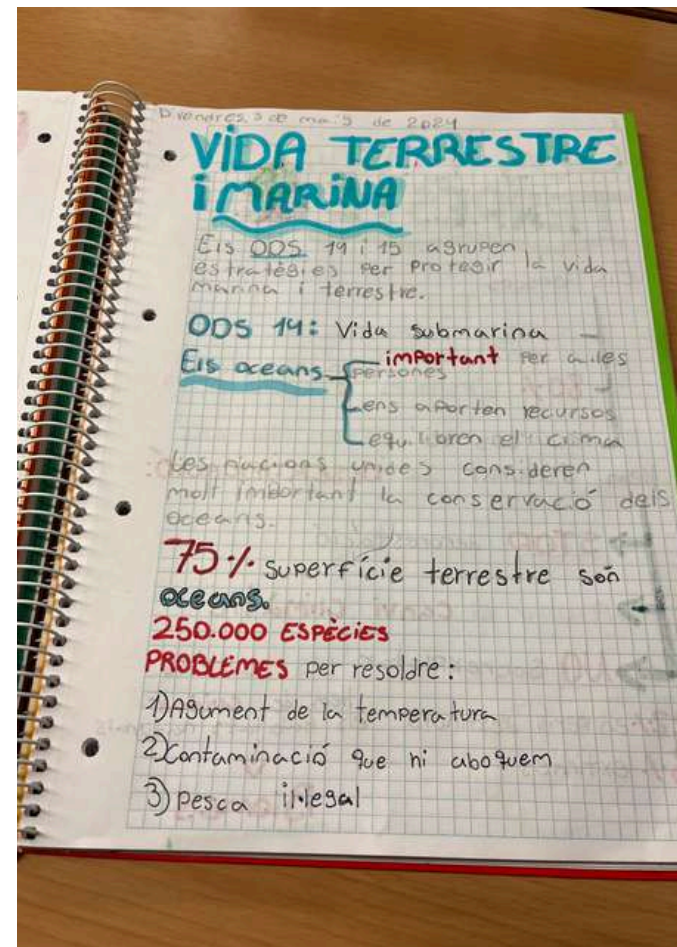 Divendres, 3 de maig de 2024
VIDA TERRESTRE
i MARINA
Els ODS 14 i 15 agrupen
estratègies per protegir la vida
marina i terrestre.
ODS 14: Vida submarina
Els oceans important per a les
persones
ens aporten recursos
equilibren el clima
Les nacions unides consideren
molt important la conservació dels
oceans.
75% superfície terrestre són
oceans.
250.000 ESPÈCIES
PROBLEMES per resoldre:
1) Agument de la temperatura
2) Contaminació que hi aboquem
3) Pesca il·legal